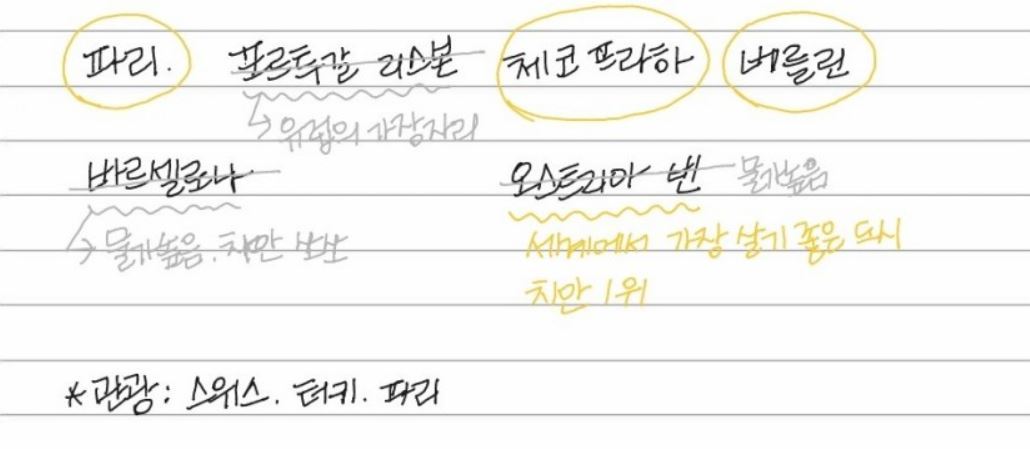 파리. 포르투갈 리스본 체코 프라하 베를린
↳ 유럽의 가장자리
바르셀로나 오스트리아 빈 물가높음
→ 물가높음. 치안 보산
세계에서 가장 살기 좋은 도시
치안 1위
*관광: 스위스. 터키. 파리